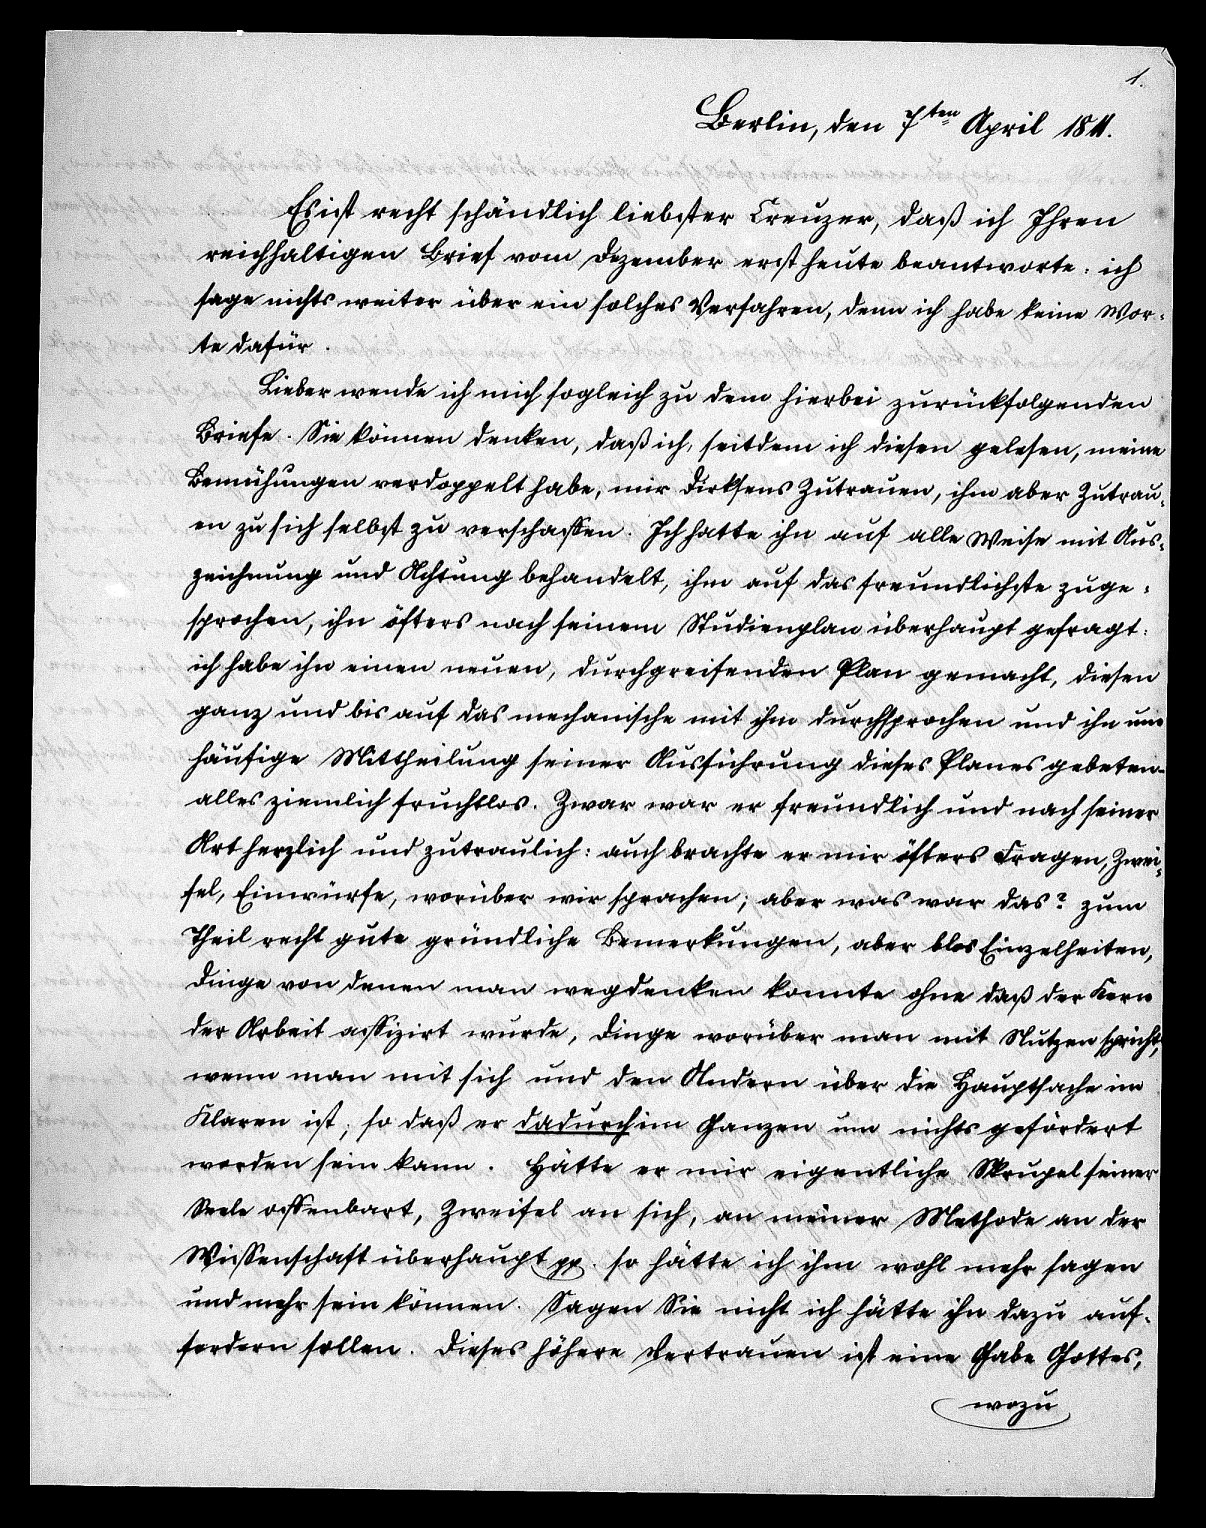 1.
Berlin, den 7ten April 1811.
Es ist recht schändlich liebster Creuzer, daß ich Ihren
reichhaltigen Brief vom Dezember erst heute beantworte: ich
sage nichts weiter über ein solches Verfahren, denn ich habe keine Wor-
te dafür.
Lieber wende ich mich sogleich zu dem hierbei zurückfolgenden
Briefe. Sie können denken, daß ich, seitdem ich diesen gelesen, meine
Bemühungen verdoppelt habe, mir Dirksens Zutrauen, ihm aber Zutrau-
en zu sich selbst zu verschaffen. Ich hatte ihn auf alle Weise mit Aus-
zeichnung und Achtung behandelt, ihm auf das freundlichste zuge-
sprochen, ihn öfters nach seinem Studienplan überhaupt gefragt:
ich habe ihm einen neuen, durchgreifenden Plan gemacht, diesen
ganz und bis auf das mechanische mit ihm durchsprochen und ihn um
häufige Mittheilung seiner Ausführung dieses Planes gebeten-
alles ziemlich fruchtlos. Zwar war er freundlich und nach seiner
Art herzlich und zutraulich: auch brachte er mir öfters Fragen, Zwei-
fel, Einwürfe, worüber wir sprachen; aber was war das? zum
Theil recht gute gründliche Bemerkungen, aber blos Einzelheiten,
Dinge von denen man wegdenken konnte ohne daß der Kern
der Arbeit affizirt wurde, Dinge worüber man mit Nutzen spricht,
wenn man mit sich und den Andern über die Hauptsache im
Klaren ist; so daß er dadurch im Ganzen um nichts gefördert
worden sein kann. Hätte er mir eigentliche Skrupel seiner
Seele offenbart, Zweifel an sich, an meiner Methode an der
Wissenschaft überhaupt pp. so hätte ich ihm wohl mehr sagen
und mehr sein können. Sagen Sie nicht ich hätte ihn dazu auf-
fordern sollen. Dieses höhere Vertrauen ist eine Gabe Gottes,
wozu